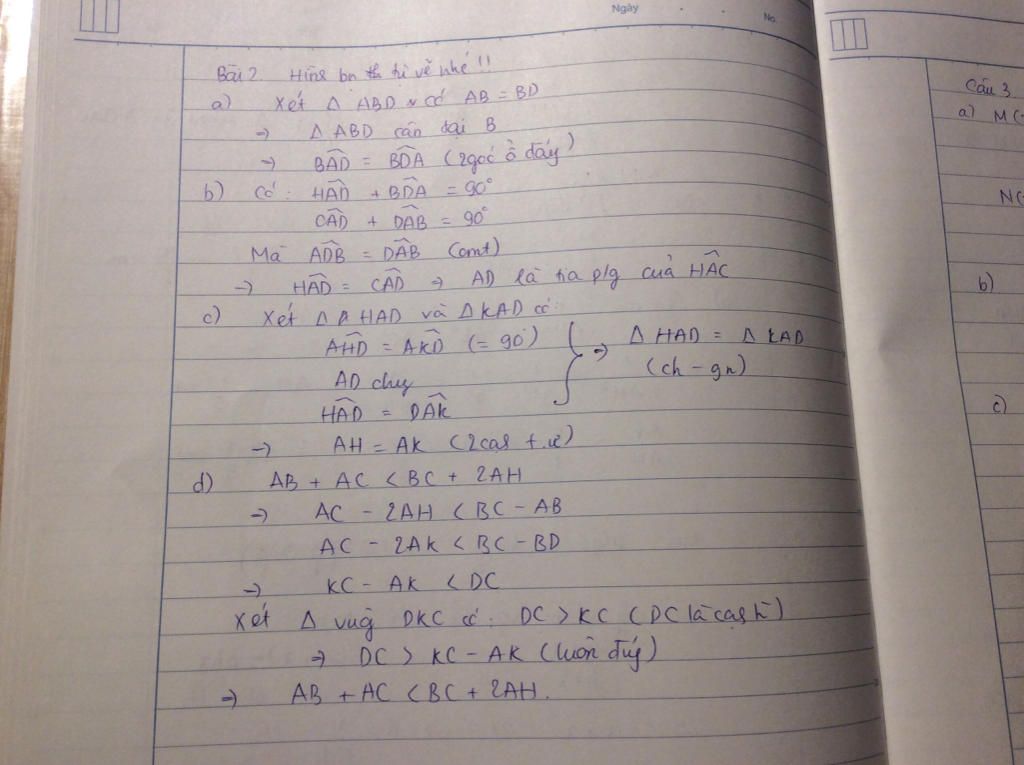 Ngày
No.
Bài 2 Hình bn tự vẽ nhé !!
a) Xét Δ ABD có AB = BD
⇒ Δ ABD cân tại B
⇒ BÂD = BD̂A (2góc ở đáy)
b) Có : HÂD + BD̂A = 90°
CÂD + DÂB = 90°
Mà AD̂B = DÂB (cmt)
⇒ HÂD = CÂD ⇒ AD là tia p/g của HÂC
c) Xét Δ HAD và Δ KAD có:
AĤD = AK̂D (= 90°)
AD chg
HÂD = DÂK
⇒ Δ HAD = Δ KAD
(ch – gn)
⇒ AH = AK (2cạh t.ứ)
d) AB + AC < BC + 2AH
⇒ AC – 2AH < BC – AB
AC – 2AK < BC – BD
⇒ KC – AK < DC
Xét Δ vuôg DKC có: DC > KC (DC là cạh h)
⇒ DC > KC – AK (luôn đúg)
⇒ AB + AC < BC + 2AH.
Câu 3
a) M(
N(
b)
c)